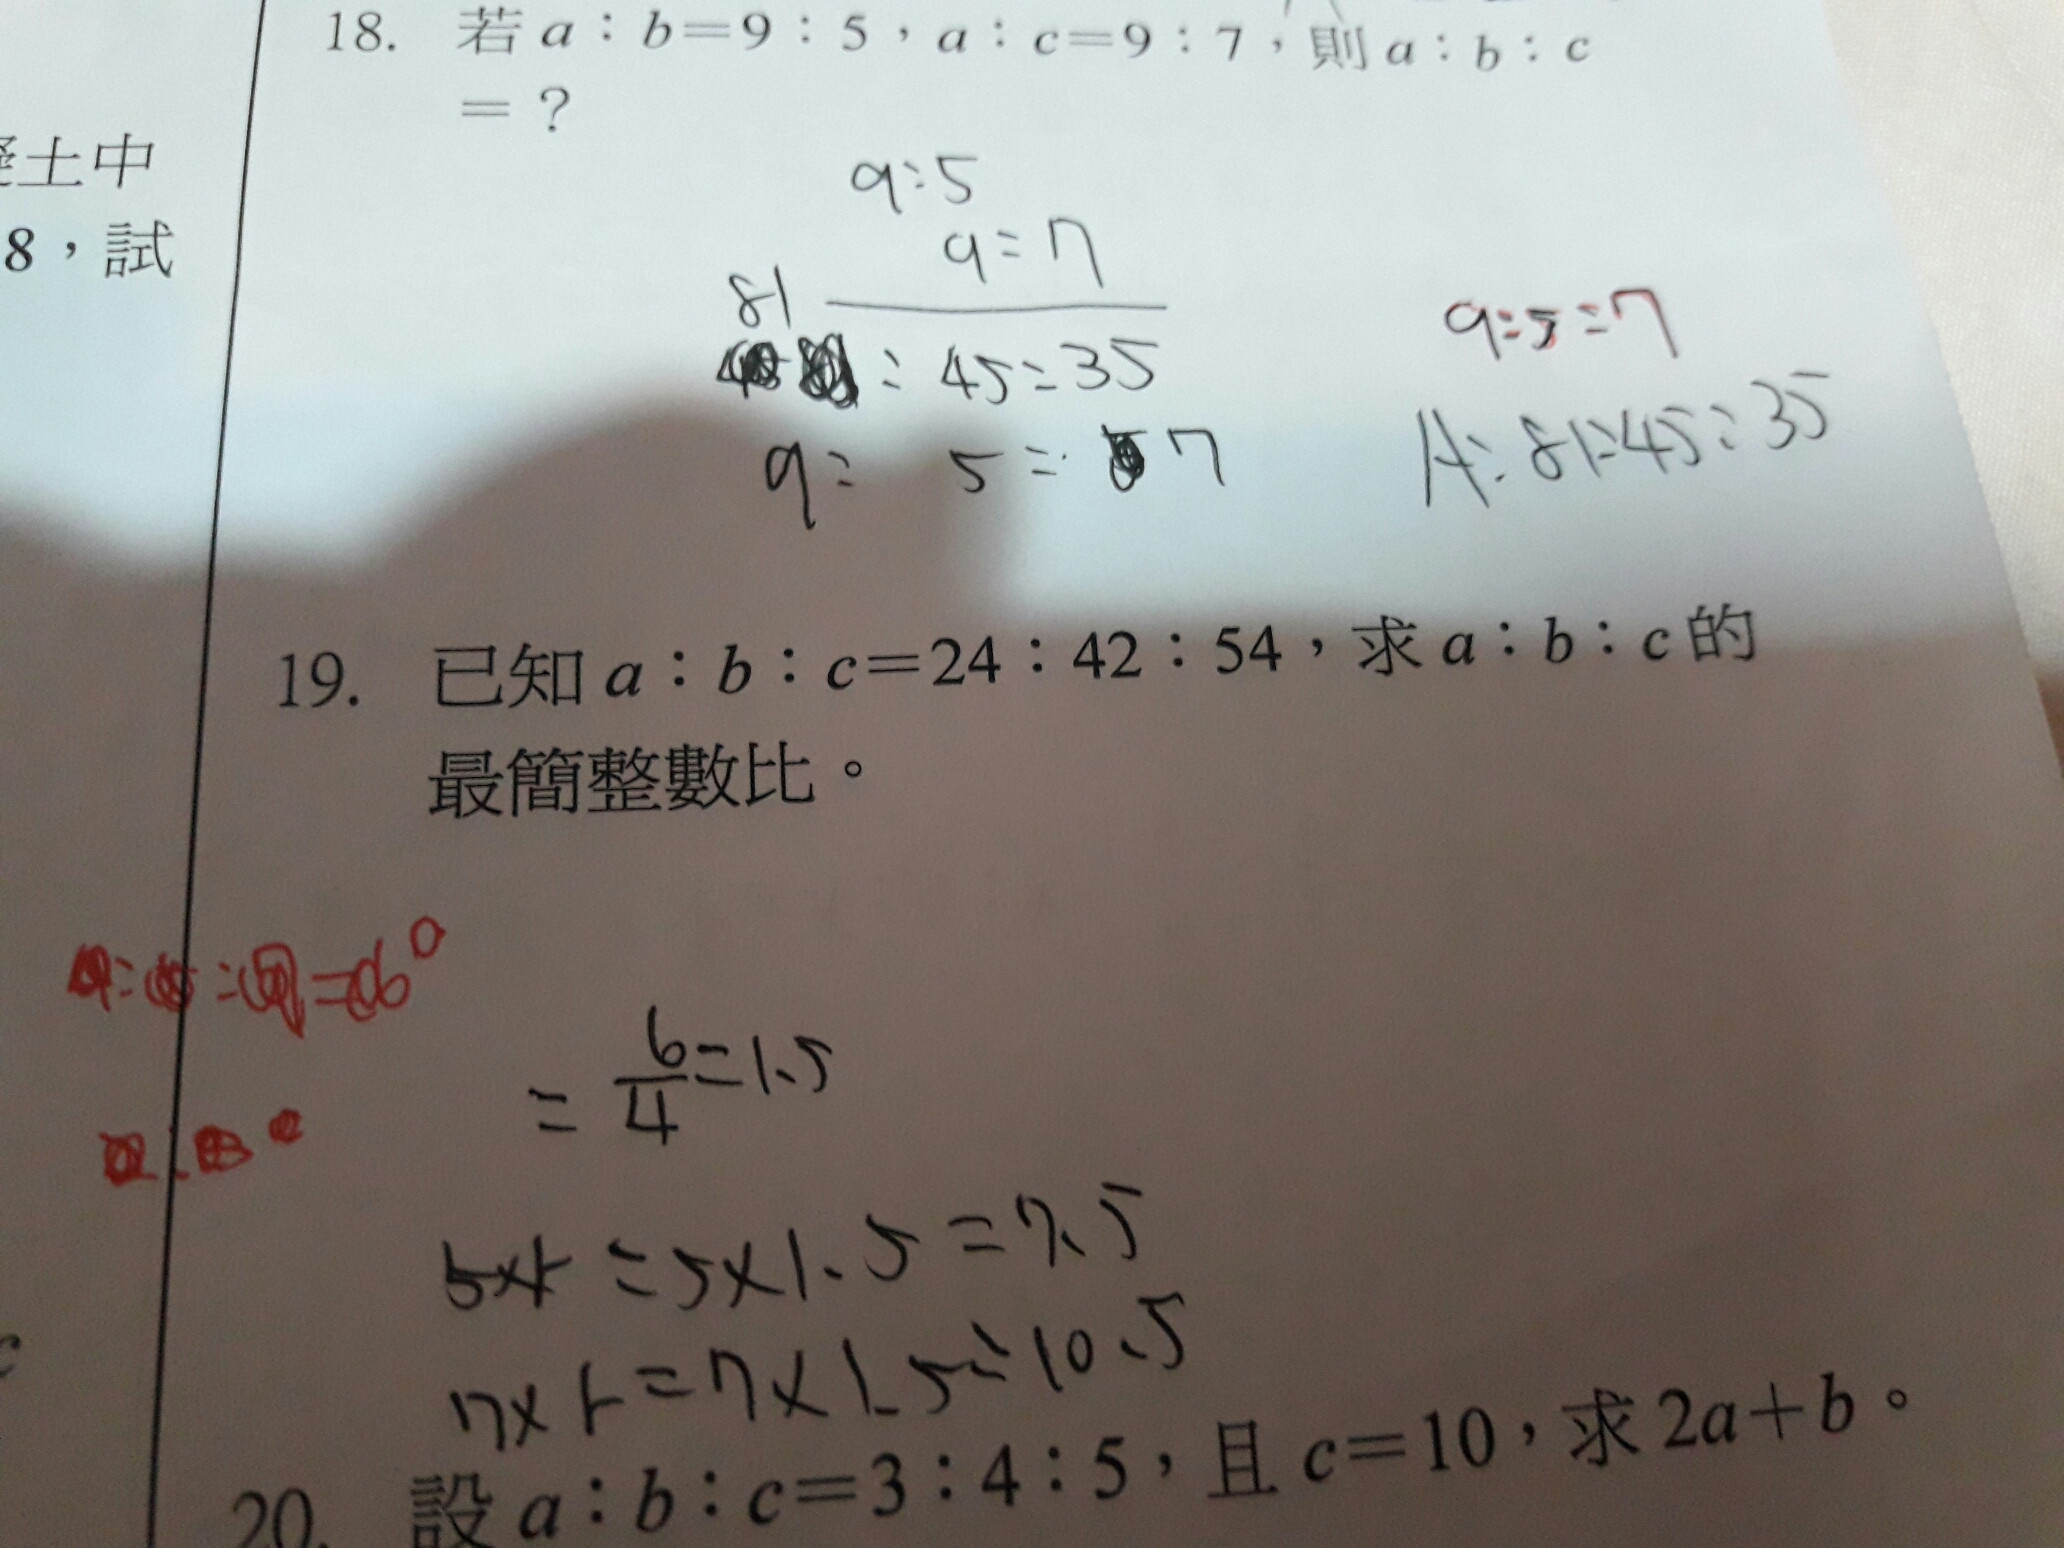 18. 若 a：b＝9：5，a：c＝9：7，則 a：b：c
＝？
9:5
9:7
81
:45:35
9: 5: 7
9:5:7
A:81:45:35
土中
8，試
19. 已知 a：b：c＝24：42：54，求 a：b：c 的
最簡整數比。
=6/4=1.5
5×r=5×1.5=7.5
7×r=7×1.5=10.5
c
20. 設 a：b：c＝3：4：5，且 c＝10，求 2a＋b。